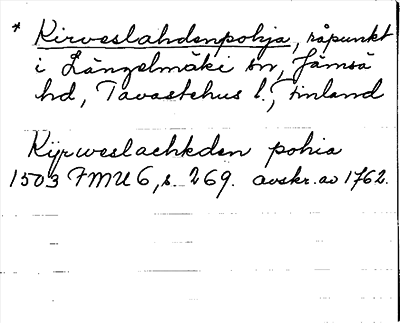 * Kirveslahdenpohja, råpunkt
i Längelmäki sn, Jämsä
hd, Tavastehus l., Finland
Kijrweslaehkden pohia
1503 FMU 6, s. 269. avskr. av 1762.